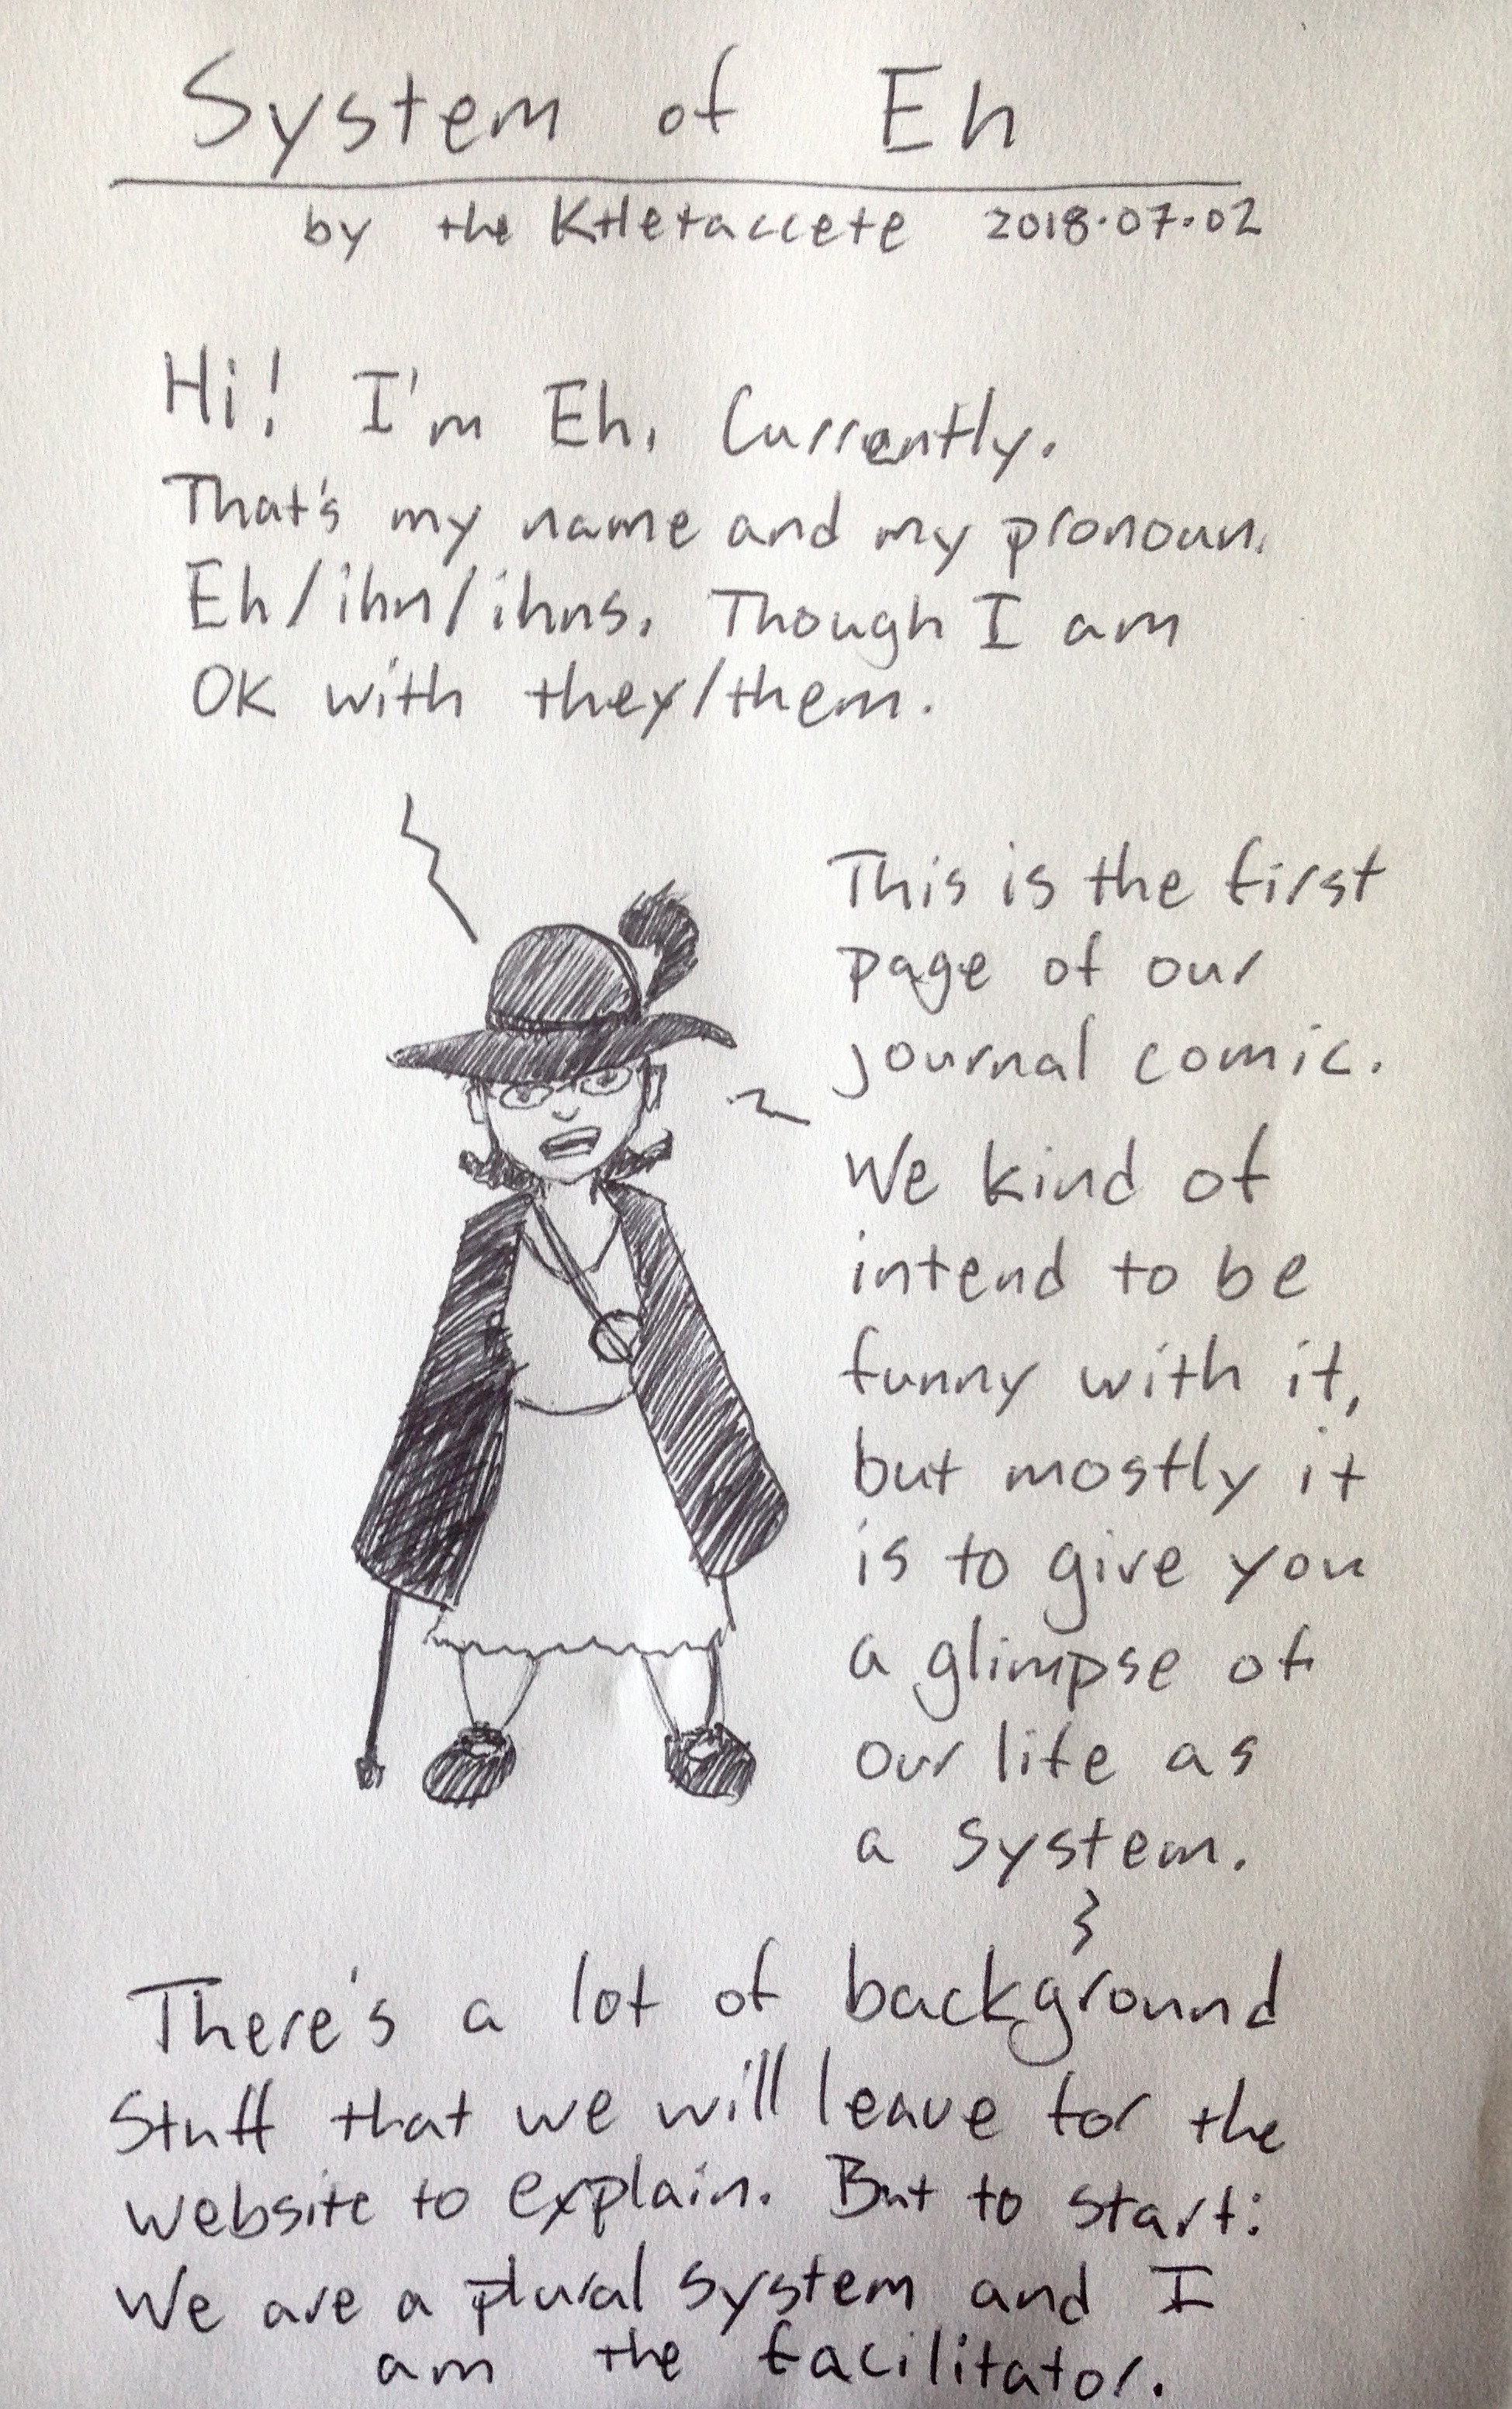 System of Eh
by the Ktletaccete 2018.07.02
Hi! I'm Eh, Currently.
That's my name and my pronoun.
Eh/ihn/ihns. Though I am
OK with they/them.
This is the first
page of our
journal comic.
We kind of
intend to be
funny with it,
but mostly it
is to give you
a glimpse of
our life as
a system.
There's a lot of background
stuff that we will leave for the
website to explain. But to start:
We are a plural system and I
am the facilitator.